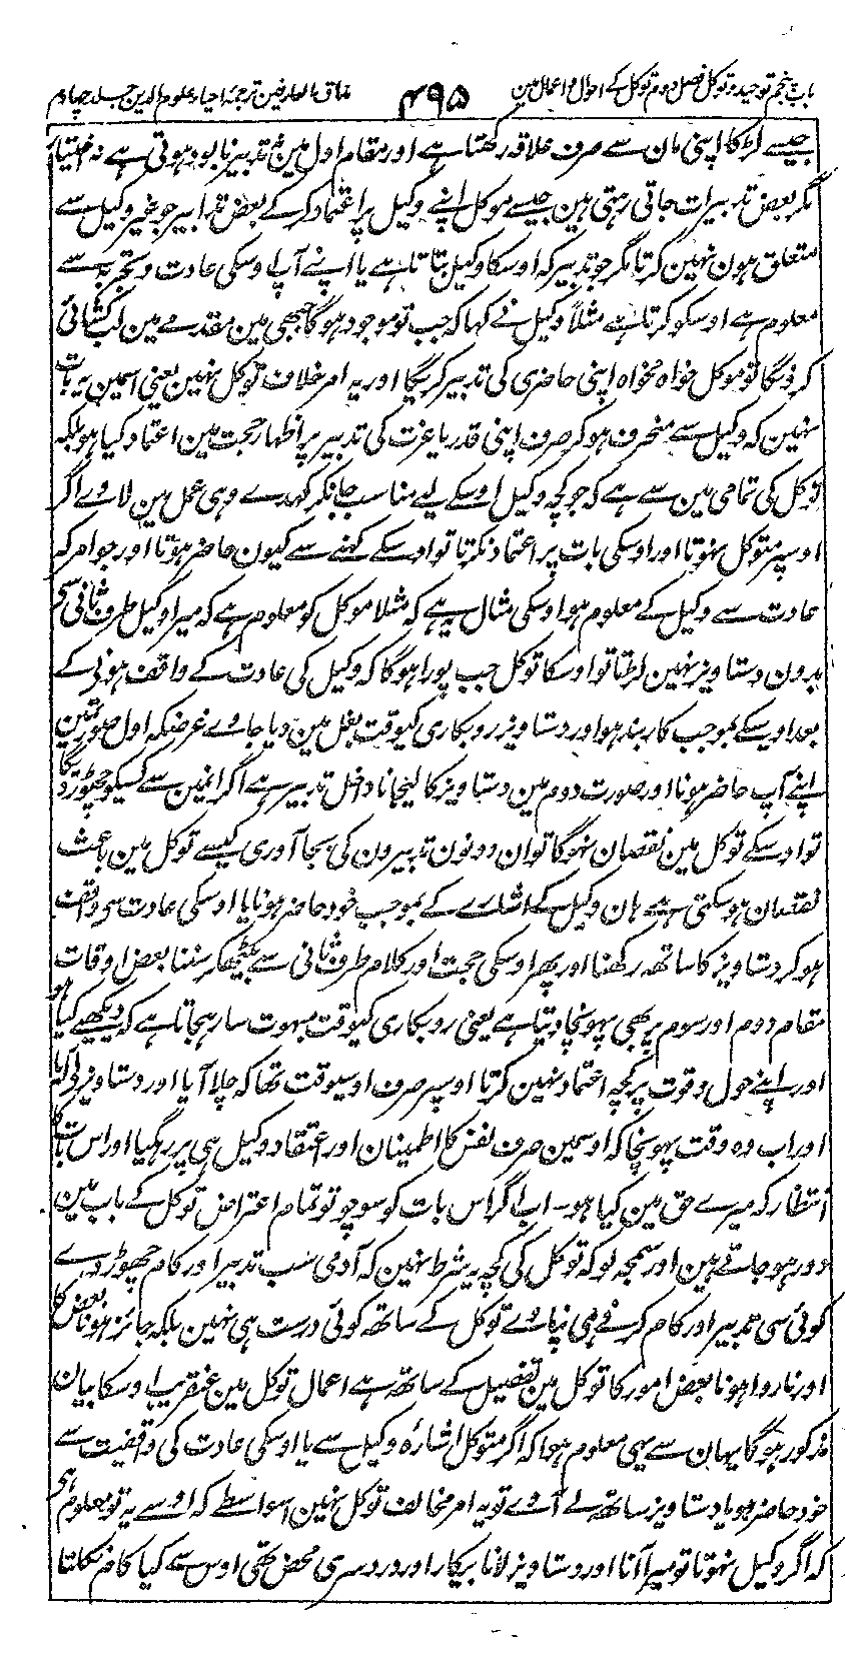 باب پنجم توحید و توکل فصل دوم توکل کے احوال و اعمال مین
۴۹۵
مذاق العارفین ترجمۂ احیاء علوم الدین جلد چہارم
جیسے لڑکا اپنی مان سے صرف علاقہ رکھتا ہے اور مقام اول مین تدبیر نابود ہوتی ہے نہ اختیار
مگر بعض تدبیرات جاتی رہتی ہین جیسے موکل اپنے وکیل پر اعتماد کرکے بعض تدابیر جو غیر وکیل سے
متعلق ہون نہین کرتا مگر جو تدبیر کہ اوسکا وکیل بتاتا ہے یا اپنے آپ اوسکی عادت و تجربہ سے
معلوم ہے اوسکو کرتا ہے مثلاً وکیل نے کہا کہ جب تو موجود ہوگا جبھی مین مقدمے مین لب کشائی
کرونگا تو موکل خواہ مخواہ اپنی حاضری کی تدبیر کریگا اور یہ امر خلاف توکل نہین یعنی اسمین یہ بات
نہین کہ وکیل سے منحرف ہوکر صرف اپنی قدر یا عزت کی تدبیر پر اظہار حجت مین اعتماد کیا ہو بلکہ
توکل کی تمامی مین سے ہے کہ جو کچھ وکیل اوسکے لیے مناسب جانکر کہدے وہی عمل مین لاوے اگر
اوسپر متوکل نہوتا اور اوسکی بات پر اعتماد نکرتا تو اوسکے کہنے سے کیون حاضر ہوتا اور جو امر کہ
عادت سے وکیل کے معلوم ہو اوسکی مثال یہ ہے کہ مثلا موکل کو معلوم ہے کہ میرا وکیل طرف ثانی سے
بدون دستاویز نہین لڑتا تو اوسکا توکل جب پورا ہوگا کہ وکیل کی عادت کے واقف ہونے کے
بعد اوسکے بموجب کاربند ہو اور دستاویز روبکاری کیوقت بغل مین دبا جاوے غرضکہ اول صورتمین
اپنے آپ حاضر ہونا اور صورت دوم مین دستاویز کا لیجانا داخل تدبیر ہے اگر انمین سے کسیکو چھوڑدیگا
تو اوسکے توکل مین نقصان نہوگا تو ان دونون تدبیرون کی بجا آوری کیسے توکل مین باعث
نقصان ہوسکتی ہے ہان وکیل کے اشارے کے بموجب خود حاضر ہونا یا اوسکی عادت سے واقف
ہوکر دستاویز کا ساتھ رکھنا اور پھر اوسکی حجت اور کلام طرف ثانی سے بیٹھکر سننا بعض اوقات
مقام دوم اور سوم پر بھی پہونچا دیتا ہے یعنی روبکاری کیوقت مبہوت سا رہجاتا ہے کہ دیکھیے کیا ہو
اور اپنے حول و قوت پر کچھ اعتماد نہین کرتا اوسپر صرف اوسیوقت تھا کہ چلا آیا اور دستاویز لے آیا
اور اب وہ وقت پہونچا کہ اوسمین صرف نفس کا اطمینان اور اعتقاد وکیل ہی پر رہگیا اور اس بات کا
انتظار کہ میرے حق مین کیا ہو۔ اب اگر اس بات کو سوچو تو تمام اعتراض توکل کے باب مین
دور ہوجاتے ہین اور سمجھ لو کہ توکل کی کچھ یہ شرط نہین کہ آدمی سب تدبیر اور کام چھوڑ دے
کوئی سی تدبیر اور کام کرنے ہی نپاوے توکل کے ساتھ کوئی درست ہی نہین بلکہ جائز ہونا بعض کا
اور ناروا ہونا بعض امور کا توکل مین تفصیل کے ساتھ ہے اعمال توکل مین عنقریب اوسکا بیان
مذکور ہوگا یہان سے یہی معلوم ہوا کہ اگر متوکل اشارۂ وکیل سے یا اوسکی عادت کی واقفیت سے
خود حاضر ہو یا دستاویز ساتھ لے آوے تو یہ امر مخالف توکل نہین اسواسطے کہ اوسے یہ تو معلوم ہی
کہ اگر وکیل نہوتا تو میرا آنا اور دستاویز لانا بیکار اور دردسری محض تھی اوس سے کیا کام نکلتا